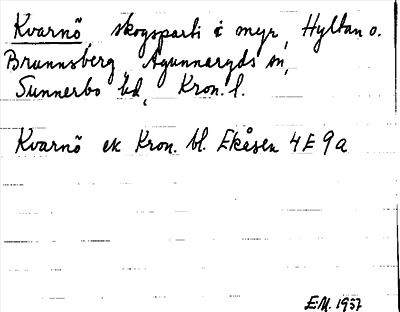 Kvarnö, skogsparti i myr, Hyltan o.
Brunnsberg, Agunnaryds sn,
Sunnerbo hd, Kron. l.
Kvarnö ek Kron. bl. Ekåsen 4E 9a
E.M. 1937